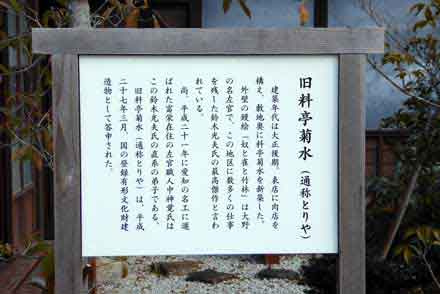 旧料亭菊水(通称とりや)
建築年代は大正後期。表店に肉店を
構え、敷地奥に料亭菊水を新築した。
外壁の鏝絵「奴と雀と竹林」は大野
の名左官で、この地区に数多くの仕事
を残した鈴木光夫氏の最高傑作と言わ
れている。
尚、平成二十一年に愛知の名工に選
ばれた富栄在住の左官職人中神覚氏は
この鈴木光夫氏の直系の弟子である。
旧料亭菊水(通称とりや)は、平成
二十七年三月、国の登録有形文化財建
造物として答申された。